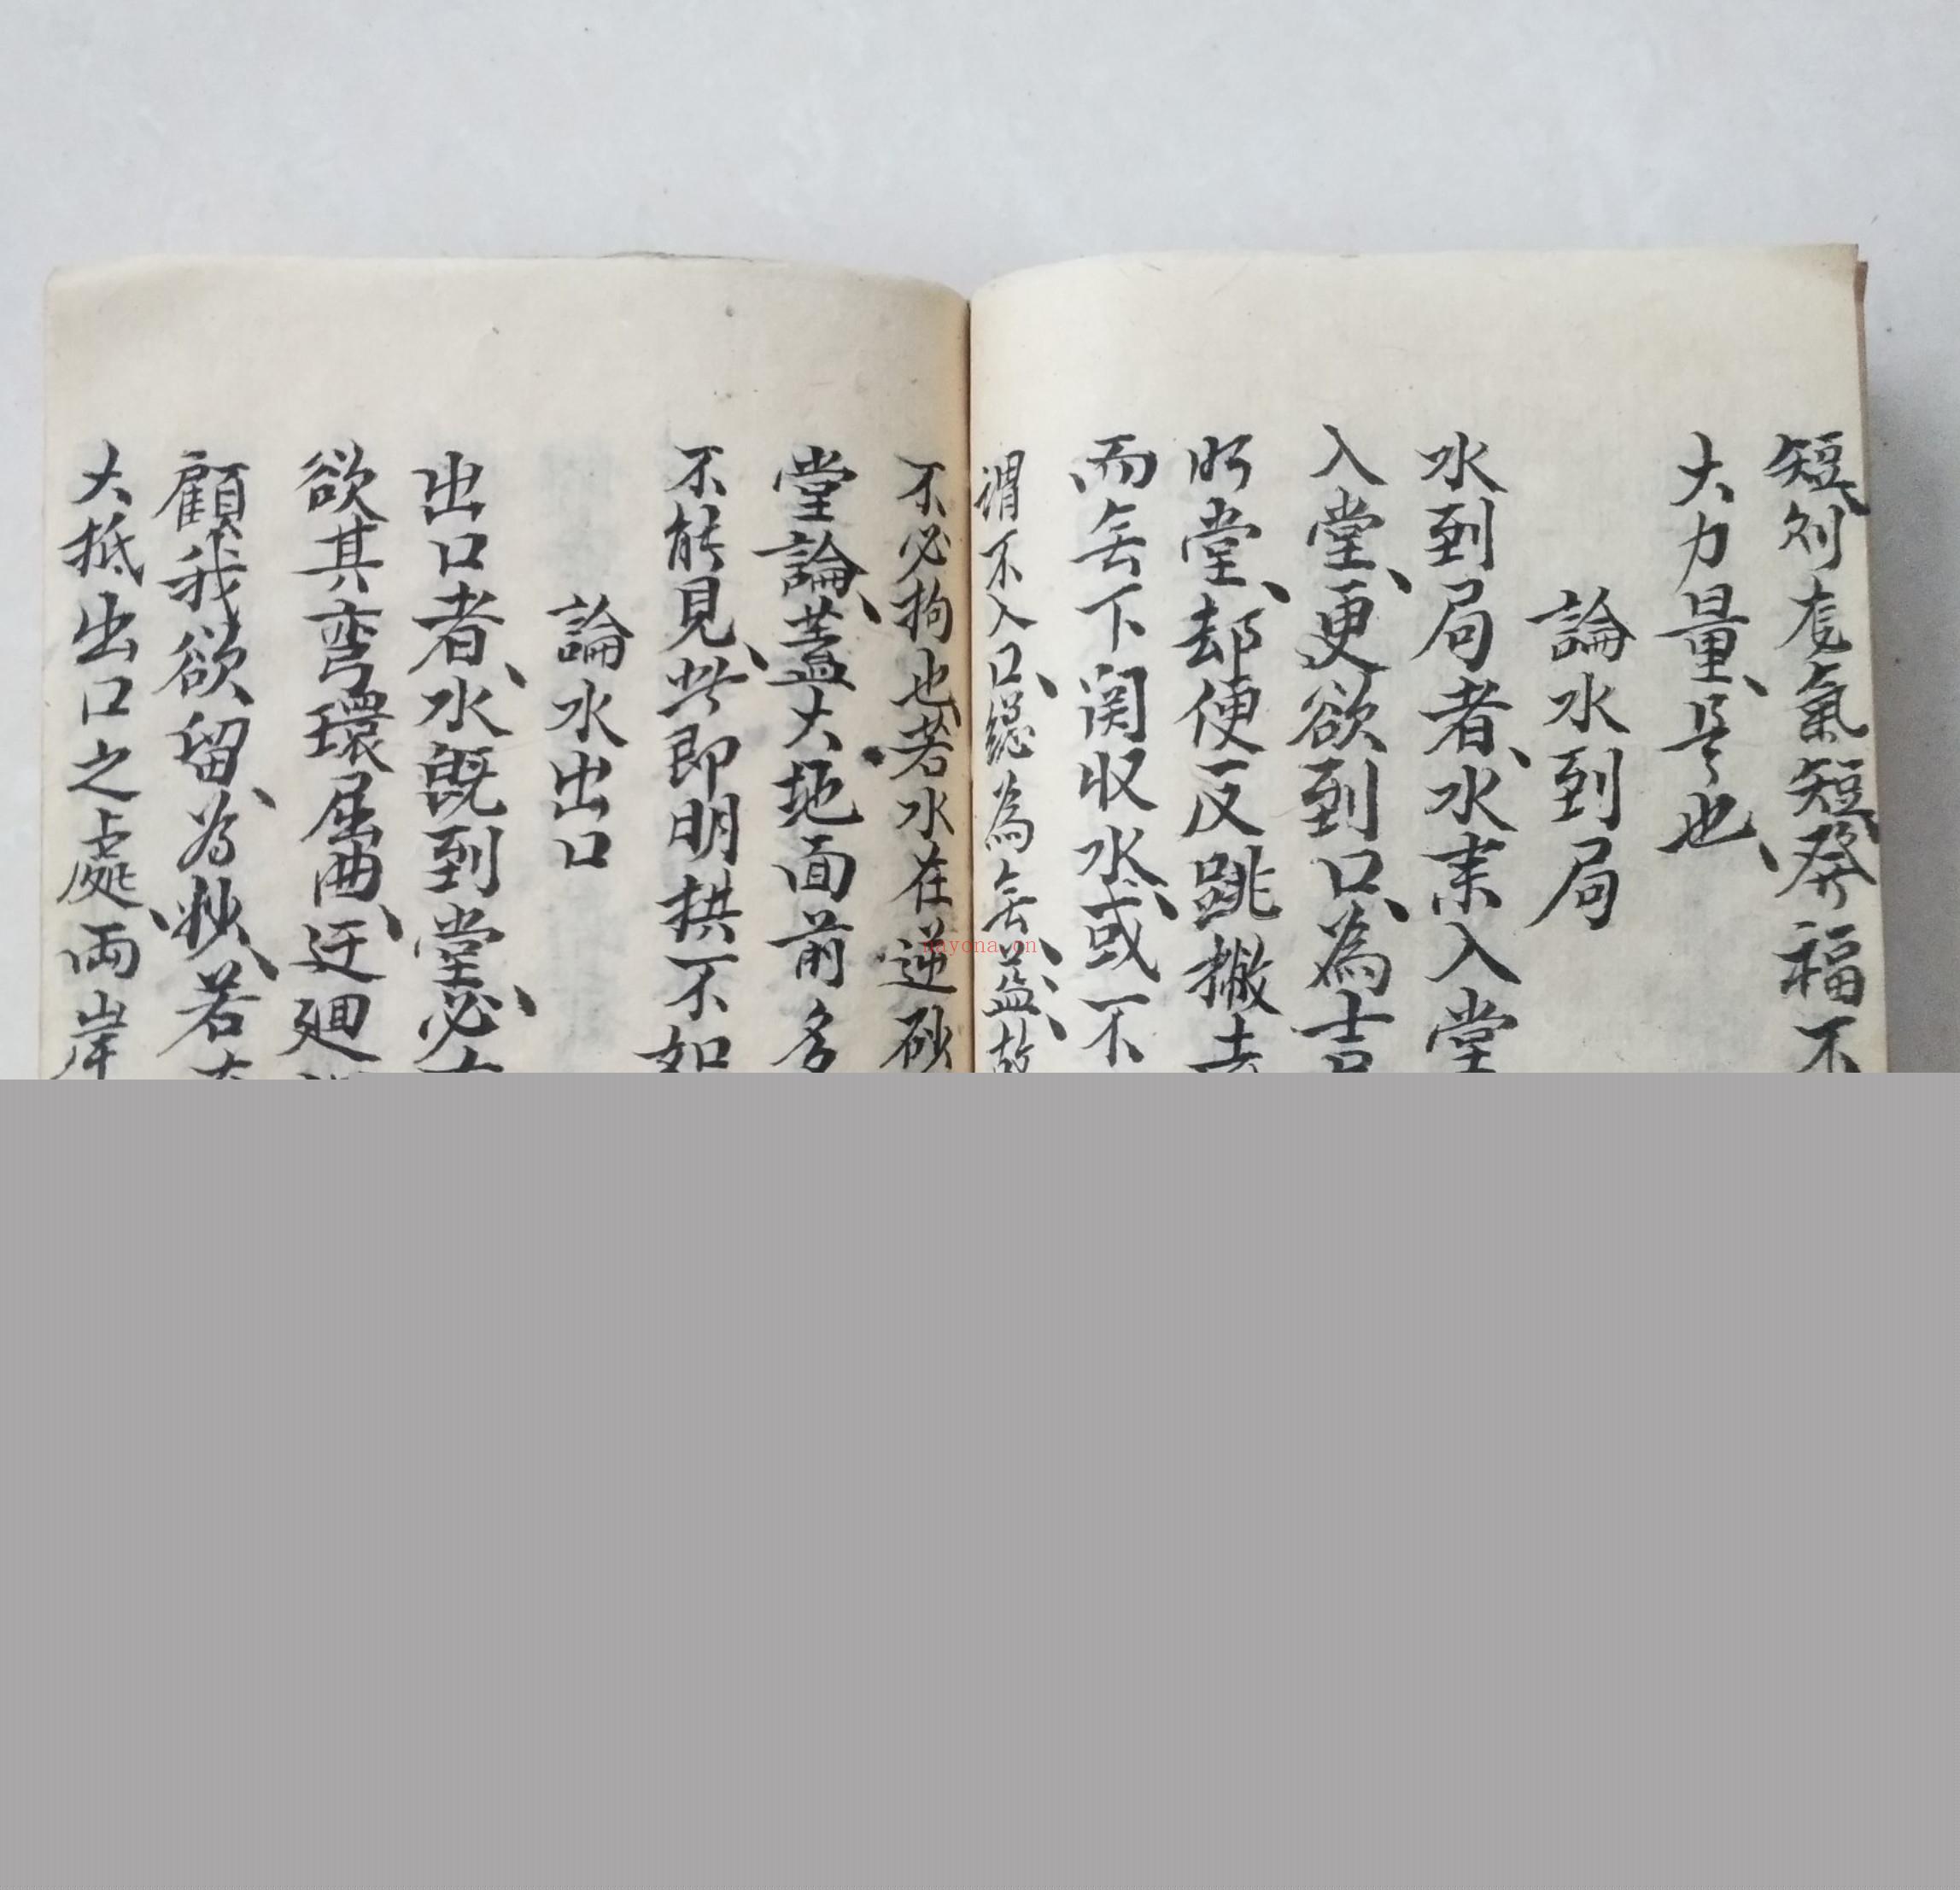 短、則龍氣短發福不
大力量、是也、
論水到局
水到局者、水来入堂
入堂、更欲到口、為吉
明堂、却便反跳撇去
而無下関収水、或不
謂不入口、総為無益、故
不必拘也若水在逆砂
堂論、蓋大地面前多
不能見、此即明拱不如
論水出口
出口者、水既到堂、必
欲其弯環屈曲、迂廻
顧我欲留、為妙、若
大抵出口之處、両岸
nayona.cn